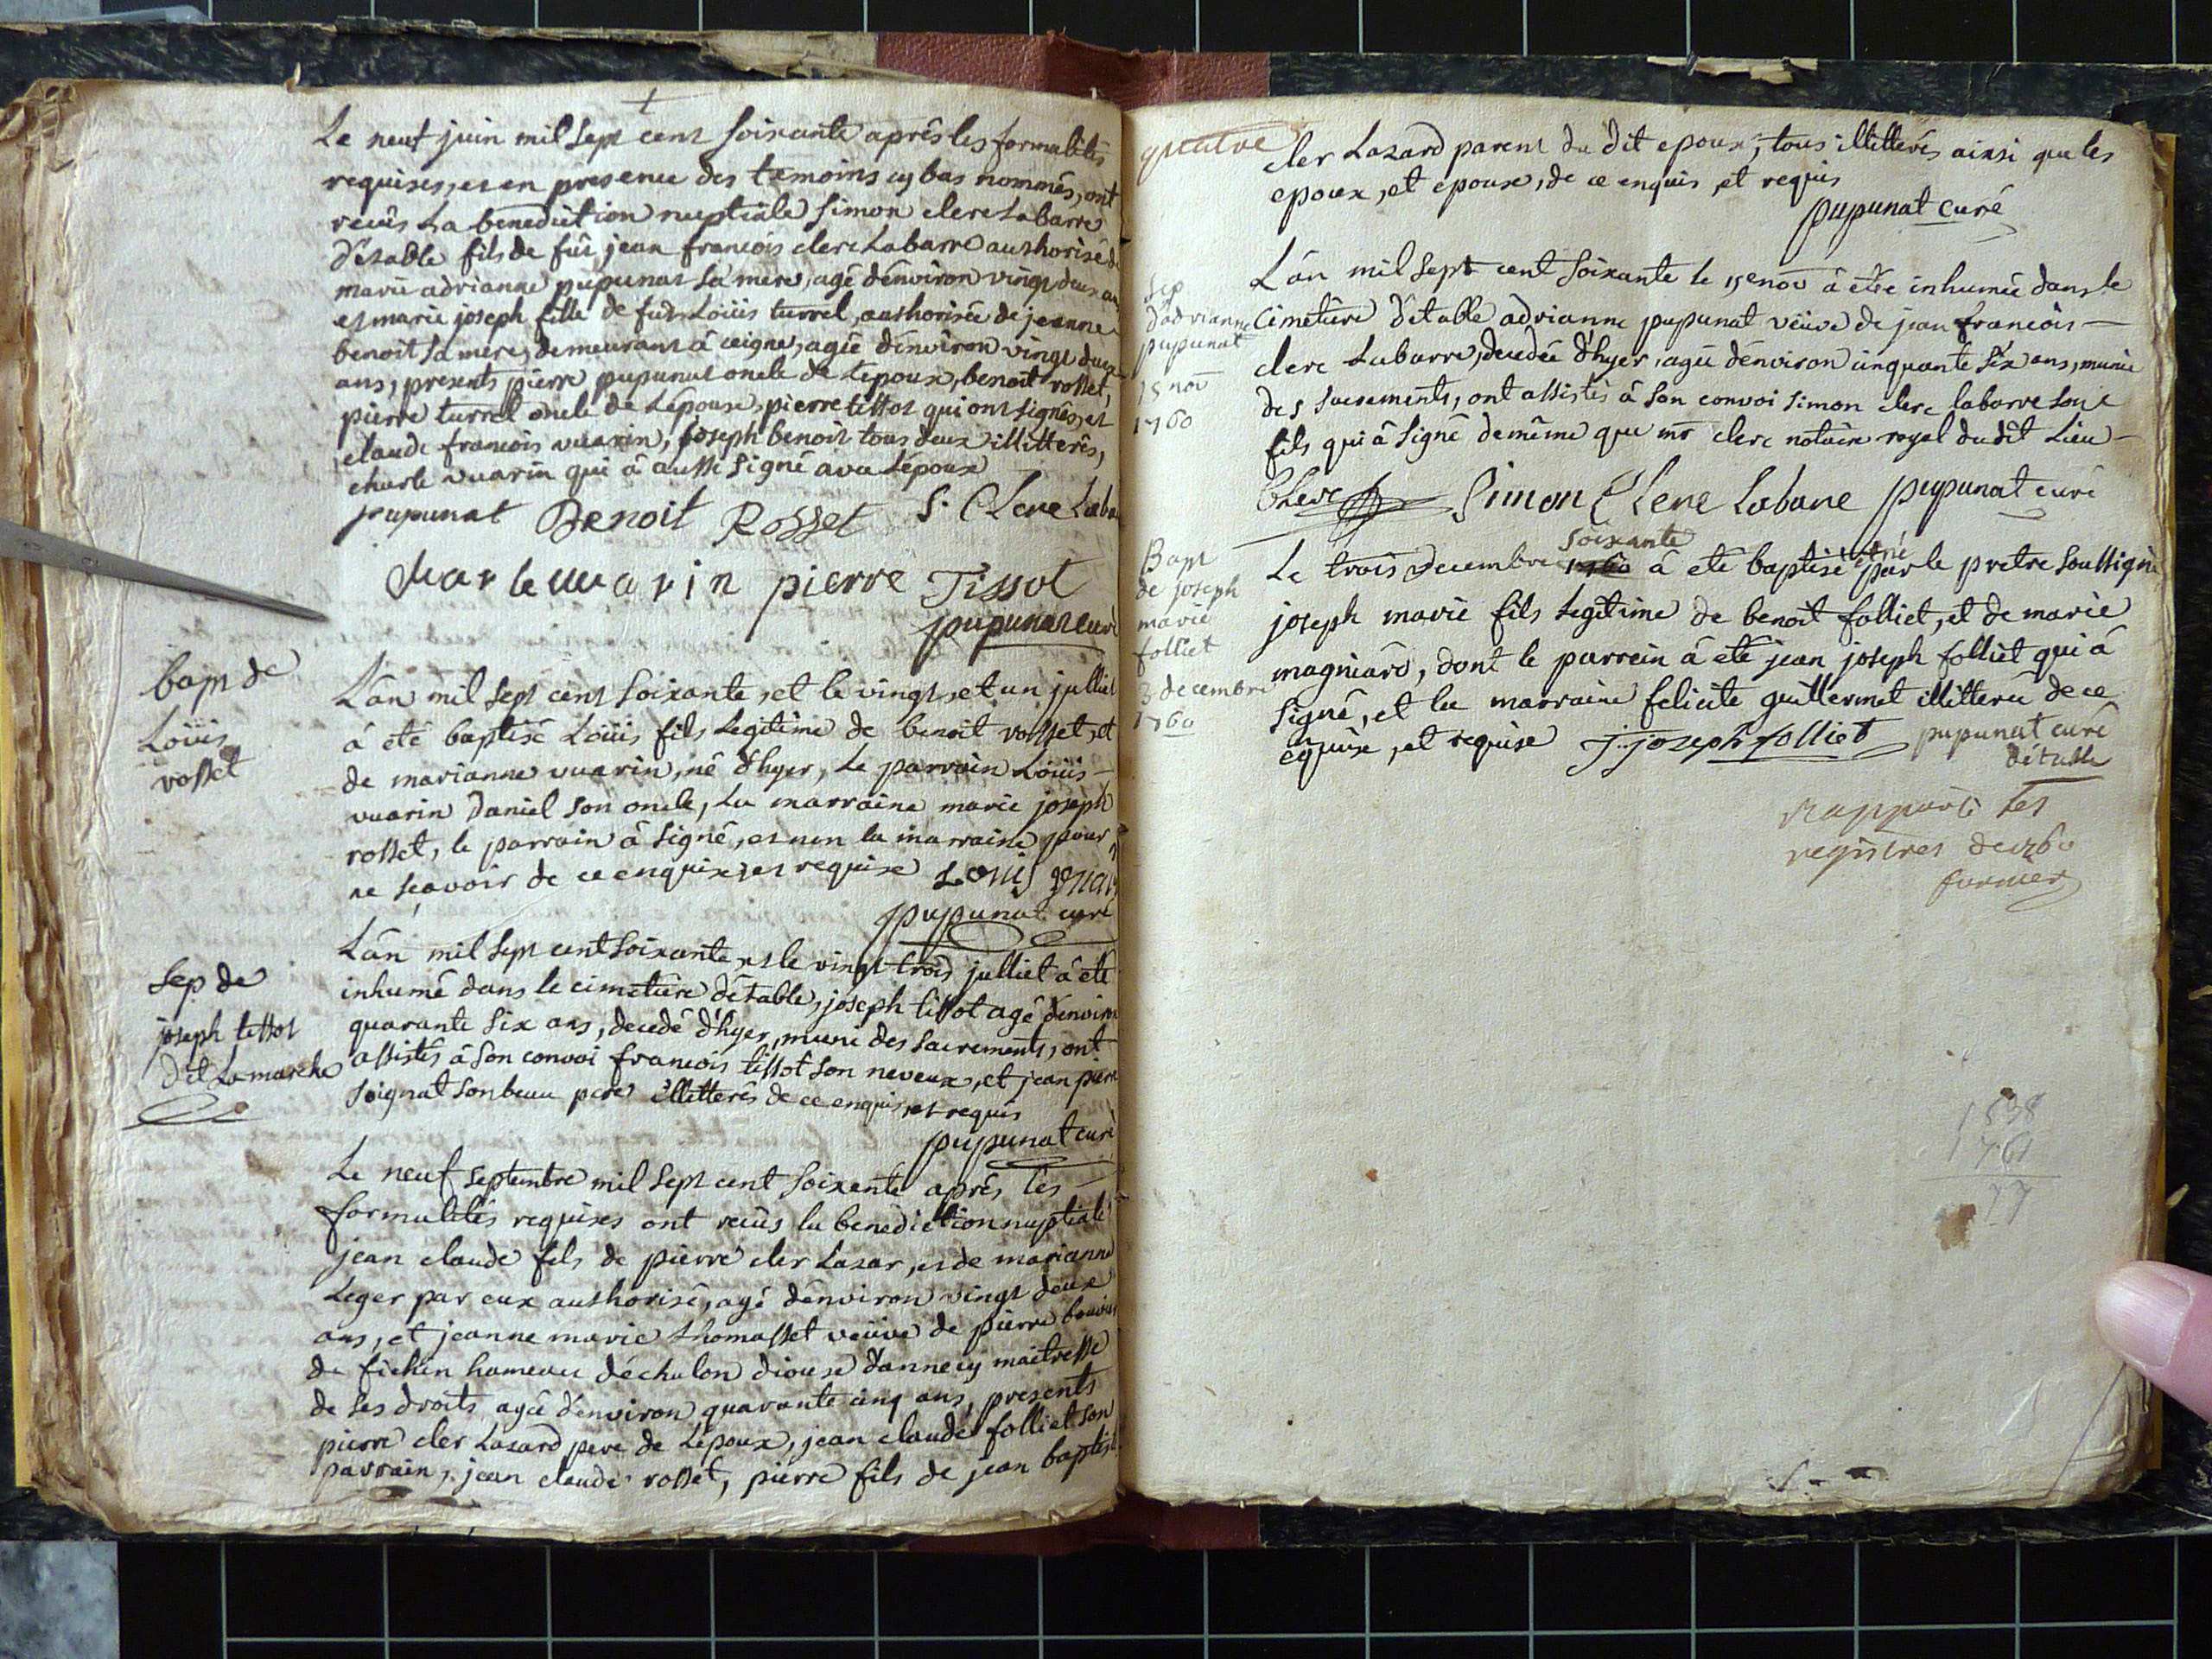 Le neuf juin mil sept cent soixante après les formalités
requises, et en présence des temoins cy bas nommés, ont
recûs La benediction nuptiale simon clerc Labarre
d'étable fils de fût jean francois clerc Labarre authorisé de
marie adrianne pupunat sa mere, agé dénviron vingt deux ans
et marie joseph fille de fut Loüis turrel, authorisée de jeanne
benoit sa mere, demeurant à ceigne, agée dénviron vingt deux
ans, presents pierre pupunat oncle de Lepoux, benoit rosset,
pierre turrel oncle de Lépouse, pierre tissot qui ont signés, et
claude francois vuarin, joseph benoit tous deux illitterés,
charle vuarin qui à aussi signé avec Lépoux
pupunat Benoit Rosset S. Clerc Laba
charle vuarin pierre Tissot
pupunat curé
bapt de
Loüis
rosset
L'ân mil sept cent soixante, et le vingt, et un julliet
à été baptisé Loüis fils Legitime de benoit rosset, et
de marianne vuarin, né d'hyer, Le parrain Loüis
vuarin daniel son oncle, La marraine marie joseph
rosset, le parrain à signé, et non la marraine pour
ne sçavoir de ce enquise, et requise Louis
pupunat curé
Sep de
joseph tissot
dit Lamarche
L'ân mil sept cent soixante, et le vingt trois julliet à été
inhumé dans le cimetiere d'étable, joseph tissot agé dénviron
quarante six ans, decedé d'hyer, muni des sacrements, ont
assistés à son convoi francois tissot son neveux, et jean pierre
soignat son beau pere illitterés de ce enquis, et requis
pupunat curé
Le neuf septembre mil sept cent soixante après les
formalités requises ont recûs la benediction nuptiale
jean claude fils de pierre cler Lazar, et de marianne
Leger par eux authorisé, agé dénviron vingt deux
ans, et jeanne marie thomasset veüve de pierre
de hameau déchalon diouse d'annecy maitresse
de ses droits agée dénviron quarante cinq ans, presents
pierre cler Lazard pere de Lépoux, jean claude folliet son
parrain, jean claude rosset, pierre fils de jean baptiste
quatre
cler Lazard parent du dit epoux, tous illitterés ainsi que les
epoux, et epouse, de ce enquis et requis
pupunat curé
Sep
d'adrianne
pupunat
15 nov
1760
L'ân mil sept cent soixante le 15e nov à etre inhumée dans le
Cimetiere d'étable adrianne pupunat veüve de jean francois
clerc Labarre, decedée d'hyer, agée dénviron cinquante six ans, munie
des sacrements, ont assistés à son convoi simon clerc labarre son
fils qui à signé de même que mr clerc notaire royal du dit Lieu
Clerc Simon Clerc Labare pupunat curé
Bapt
de joseph
marie
folliet
3 decembre
1760
soixante
Le trois decembre 1760 à eté baptisé et né par le pretre soussigné
joseph marie fils Legitime de benoit folliet, et de marie
magniard, dont le parrein à eté jean joseph folliet qui à
signé, et la marraine felicite guillermet illitterée de ce
equise, et requise j. joseph folliet pupunat curé
d'étable
rapporté les
registres de 1760
fournier
1838
1761
77